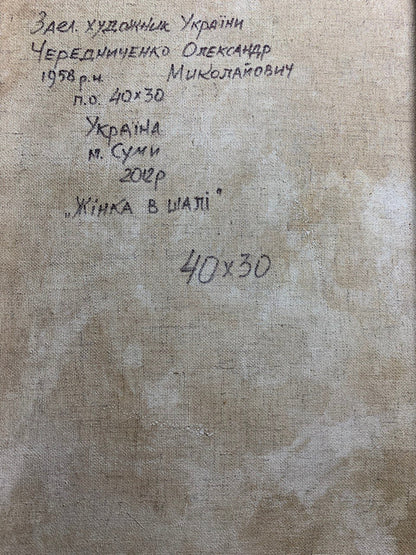 Засл. художник України
Чередниченко Олександр
1958 р.н. Миколайович
п.о. 40×30
Україна
м. Суми
2012р
„Жінка в шалі"
40×30